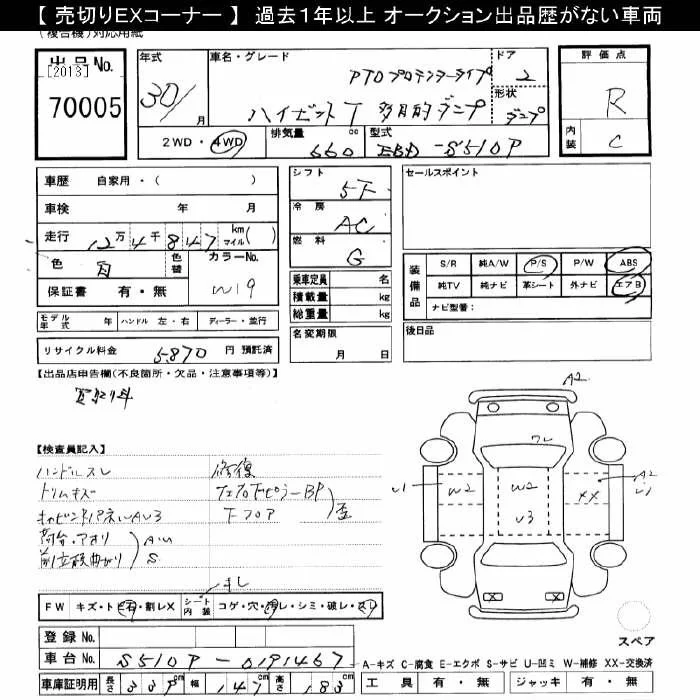 【 売切りEXコーナー 】 過去１年以上 オークション出品歴がない車両
(複合機)対応用紙
出品No.
[2013]
70005
年式
30/
月
車名・グレード
ハイゼットT 多目的ダンプ
ドア
2
形状
ダンプ
評価点
R
内装
C
2WD・4WD
排気量
660
cc
型式
EBD-S510P
車歴 自家用・( )
車検 年 月
走行 12万4千847 km マイル( )
色 白
色替
カラーNo.
W19
保証書 有・無
シフト
5F
冷房
AC
燃料
G
乗車定員 名
積載量 kg
総重量 kg
名変期限
月 日
セールスポイント
装備品
S/R 純A/W P/S P/W ABS
純TV 純ナビ 革シート 外ナビ エアB
ナビ型番：
後日品
モデル年式 年 ハンドル 左・右 ディーラー・並行
リサイクル料金 5,870 円 預託済
【出品店申告欄(不良箇所・欠品・注意事項等)】
【検査員記入】
ハンドルスレ
修復
トリムキズ
下フロア
歪
荷台・アオリ
AU
S
FW キズ・ト石・割レX シート内装 コゲ・穴・汚レ・シミ・破レ・スレ
A2
ワレ
U1
W2
W2
U3
XX
A2
U1
XX
XX
スペア
登録No.
車台No. S510P-0191467
A-キズ C-腐食 E-エクボ S-サビ U-凹ミ W-補修 XX-交換済
車庫証明用 長さ 339cm 幅 147cm 高さ 183cm
工具 有・無 ジャッキ 有・無